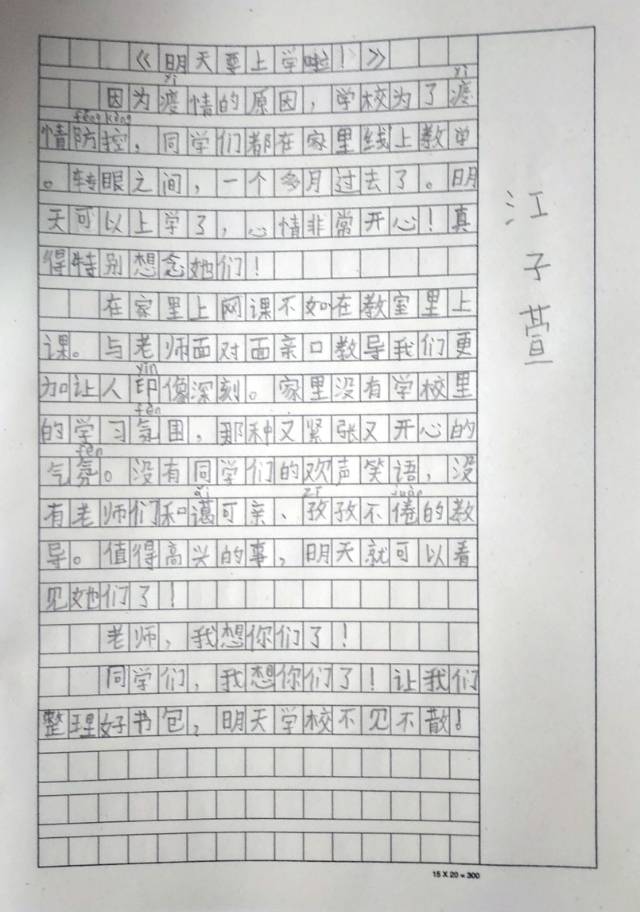 《明天要上学啦！》
yì yì
因为渡情的原因，学校为了渡
fēng kòng
情防控，同学们都在家里线上教学
。转眼之间，一个多月过去了。明
天可以上学了，心情非常开心！真
得特别想念她们！
在家里上网课不如在教室里上
课。与老师面对面亲口教导我们更
yìn
加让人印像深刻。家里没有学校里
fēn
的学习氛围，那种又紧张又开心的
fēn
气氛。没有同学们的欢声笑语，没
ǎi zī juàn
有老师们和蔼可亲、孜孜不倦的教
导。值得高兴的事，明天就可以看
见她们了！
老师，我想你们了！
同学们，我想你们了！让我们
整理好书包，明天学校不见不散！
江子萱
15 X 20 = 300